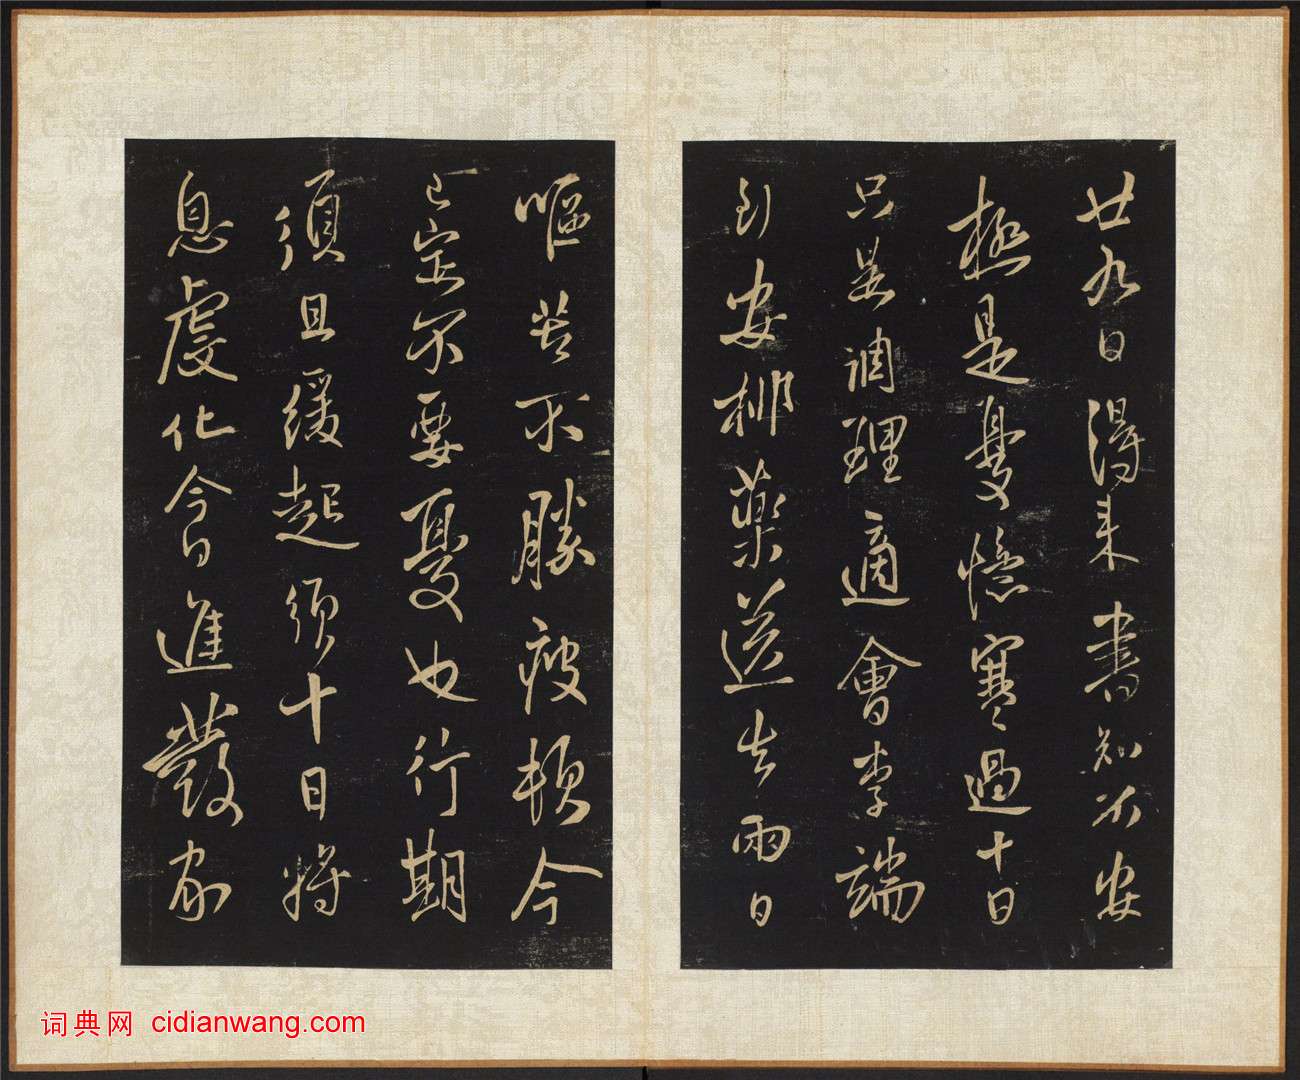 廿九日得来書知不安
極是憂憶寒過十日
只是調理適會李端
到安排藥送去雨日
嘔苦不勝疲頓今
已定不要憂也行期
須且緩起須十日將
息虔化今日進發家
词典网 cidianwang.com